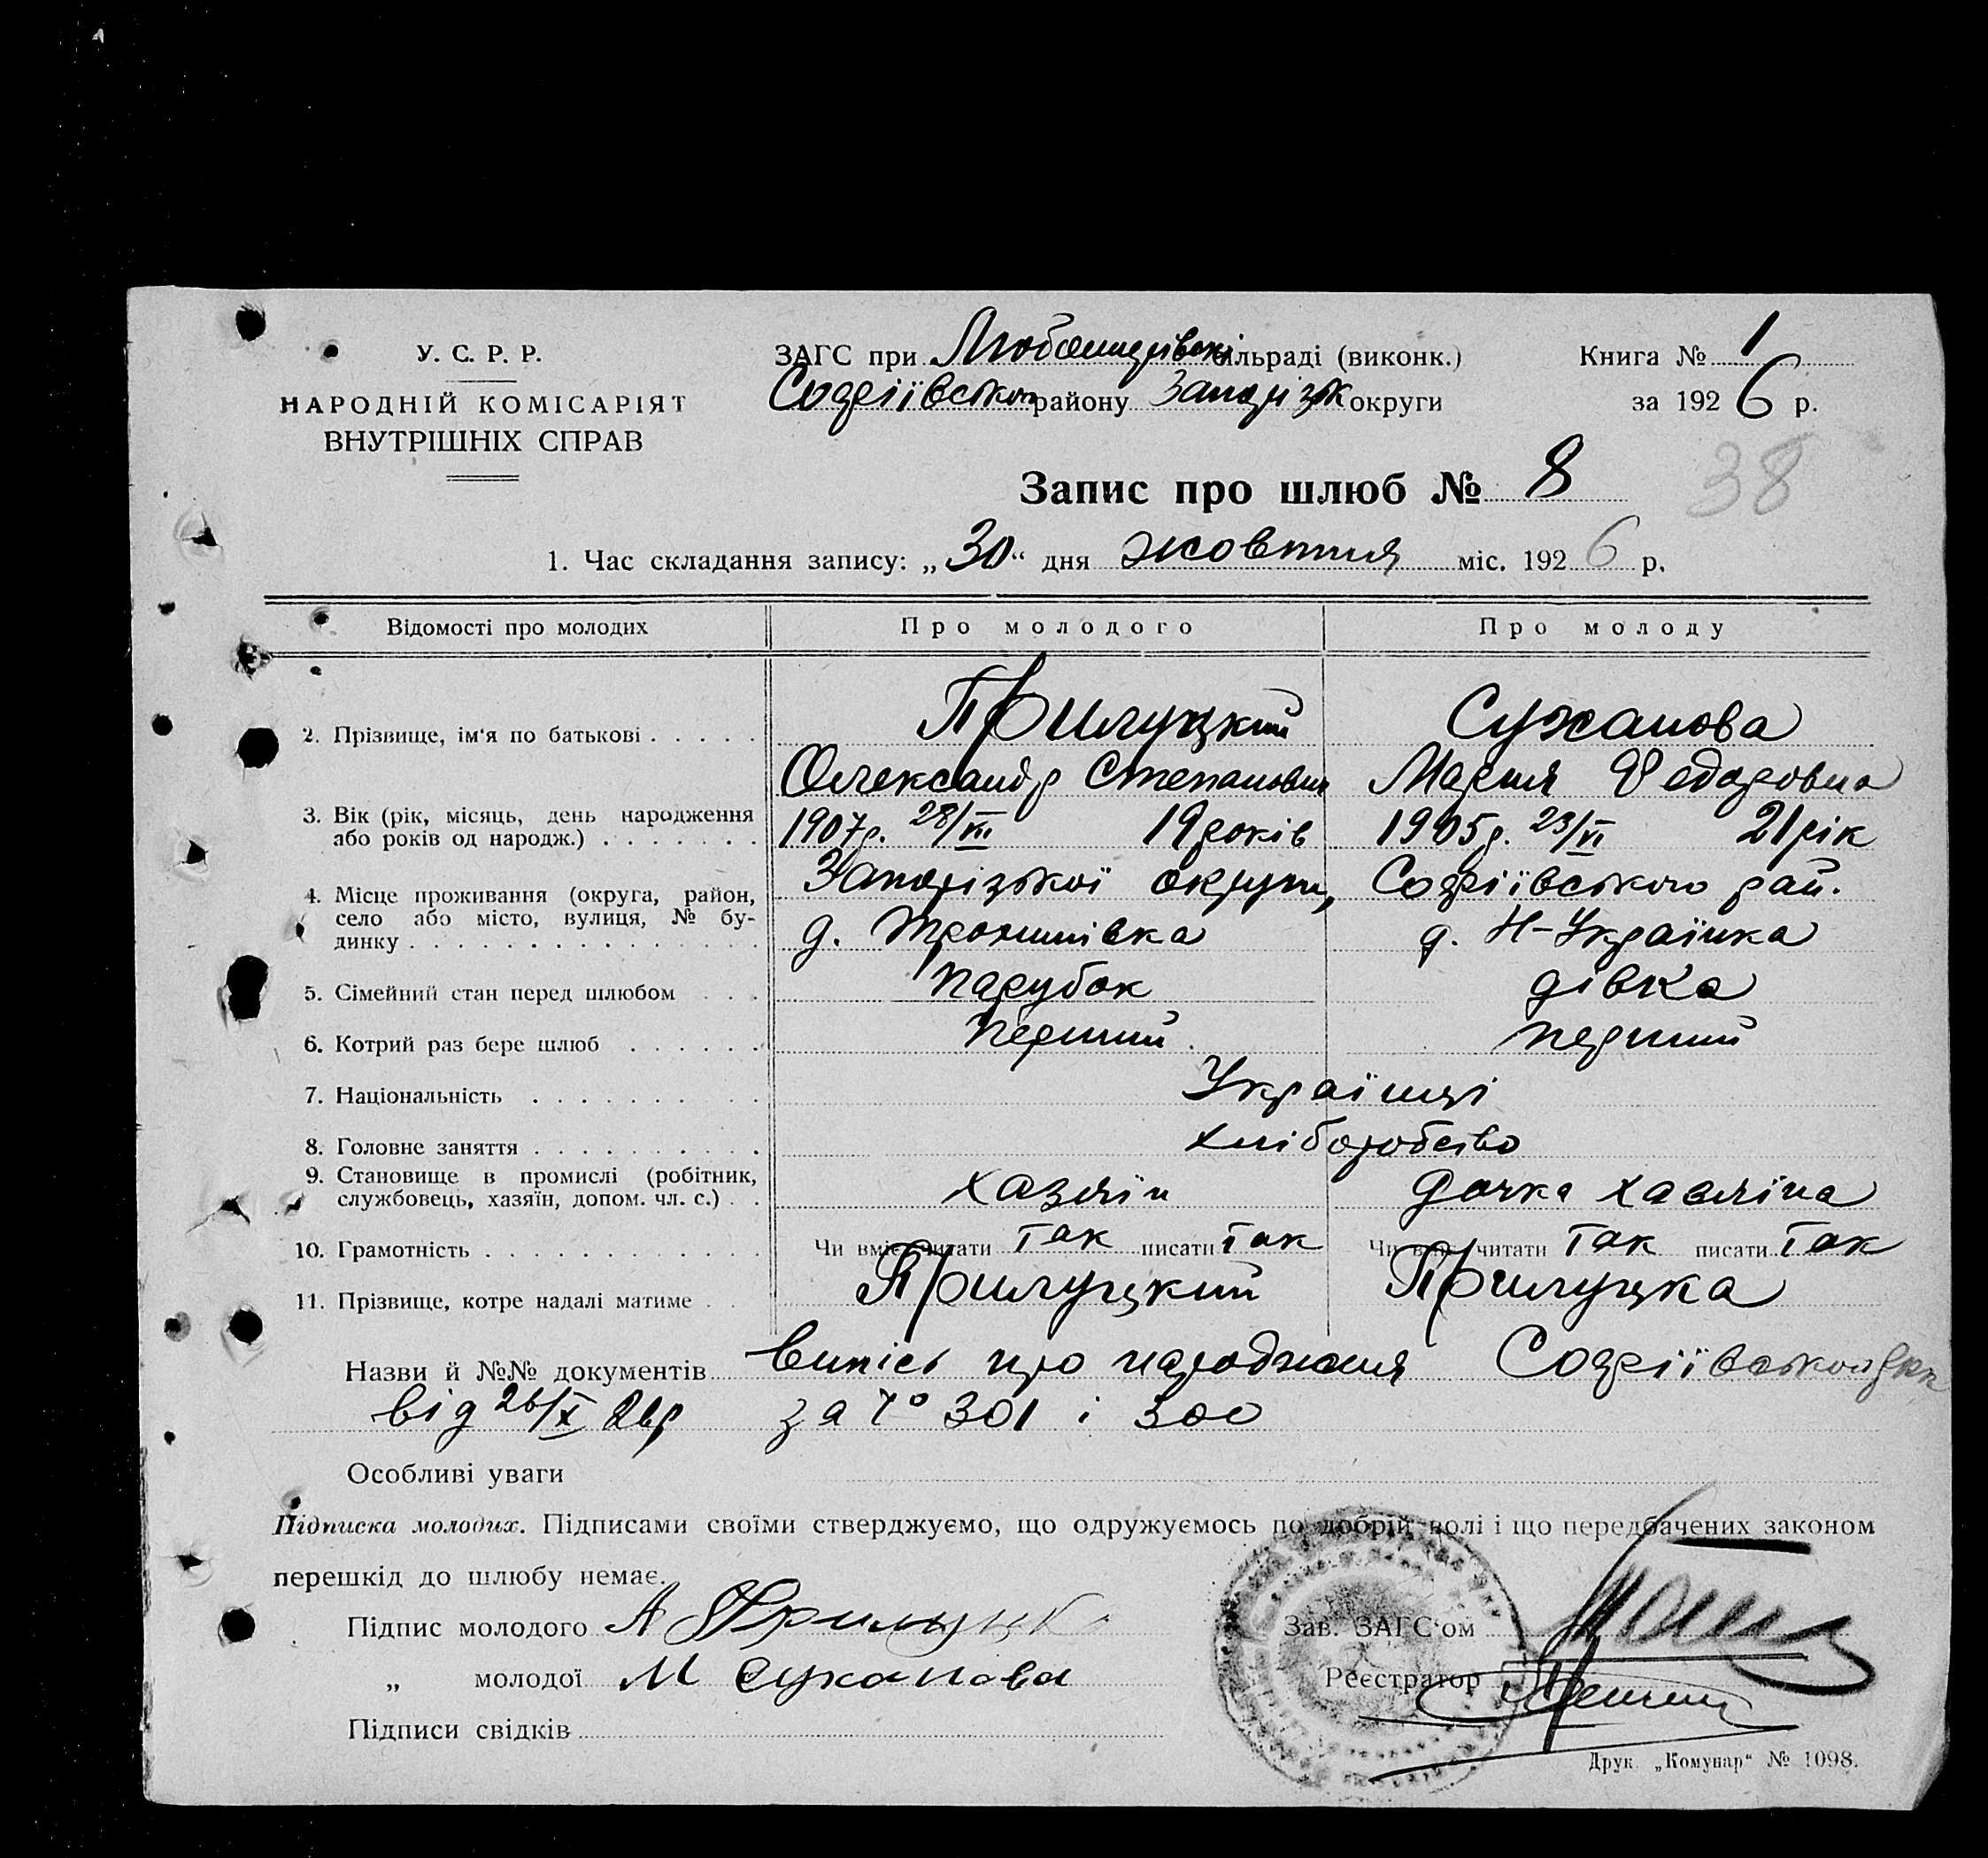 У. С. Р. Р.
НАРОДНІЙ КОМІСАРІЯТ
ВНУТРІШНІХ СПРАВ
ЗАГС при Любомирівській сільраді (виконк.)
Софіївського району Запоріжк округи
Книга № 1
за 1926 р.
Запис про шлюб № 8
38
1. Час складання запису: „30“ дня жовтня міс. 1926 р.
Відомості про молодих Про молодого Про молоду
2. Прізвище, ім'я по батькові Прилуцкий Суханова
Олександр Степанович Мария Федоровна
3. Вік (рік, місяць, день народження
або років од народж.) 1907р. 28/ 19 років 1905р. 23/VI 21 рік
4. Місце проживання (округа, район,
село або місто, вулиця, № бу-
динку Запорізької округи, Софіївського рай.
д. д. Н-Українка
5. Сімейний стан перед шлюбом парубок дівка
6. Котрий раз бере шлюб перший перший
7. Національність Українці
8. Головне заняття хліборобство
9. Становище в промислі (робітник,
службовець, хазяїн, допом. чл. с.) хазяїн дочка хазяїна
10. Грамотність Чи вміє читати так писати так Чи вміє читати так писати так
11. Прізвище, котре надалі матиме Прилуцкий Прилуцка
Назви й №№ документів випісь про народження Софіївського
від 26/X 26р за № 301 і 300
Особливі уваги
Підписка молодих. Підписами своїми стверджуємо, що одружуємось по добрій волі і що передбачених законом
перешкід до шлюбу немає.
Підпис молодого А Прилуцк
„ молодої М Суханова
Підписи свідків
Зав. ЗАГС'ом
Реєстратор
Друк. „Комунар“ № 1098.